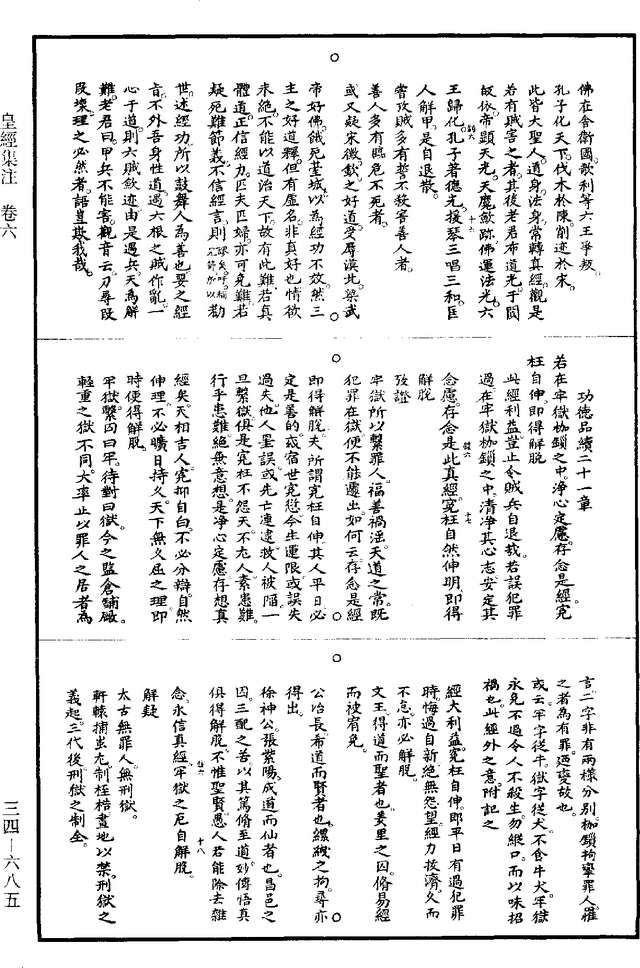 皇經集注　卷六
佛在舍衛國歌利等六王爭叛
孔子化天下伐木於陳削迹於宋
此皆大聖人道身法身常轉真經觀是
若有賊害之者其後老君布道光于閻
皈依帝顯天光天魔斂跡佛運法光六
王歸化孔子著德光援琴三唱三和匡
人解甲是自退散
嘗攷賊多有誓不殺害善人者
善人多有臨危不死者
或又疑宋徽欽之好道受辱漠北梁武
帝好佛餓死臺城以為經功不效然三
主之好道釋但有虛名非真好也情欲
未絶不能以道治天下故有此難若真
體道正信經力匹夫匹婦亦可免難若
疑死難節義不信經言則勸
世述經功所以鼓舞人為善也要之經
言不外吾身性道過六根之賊作亂一
心于道則六賊斂迹由是遇兵天為解
難老君曰甲兵不能害觀音云刀尋段
段壞理之必然者語豈欺我哉
功德品續二十一章
若在牢獄枷鎖之中淨心定慮存念是經寃
枉自伸即得解脫
此經利益豈止令賊兵自退哉若誤犯罪
過在牢獄枷鎖之中清淨其心志安定其
念慮存念是此真經寃枉自然伸明即得
解脫
攷證
牢獄所以繫罪人福善禍淫天道之常既
犯罪在獄便不能遷出如何云存念是經
即得解脫夫所謂寃枉自伸其人平日必
定是善的或宿世寃愆今生運限或誤失
過失他人罣誤或先亡連逮救人被陷一
旦繫獄俱是寃枉不怨天不尤人素患難
行乎患難絕無意想是淨心定慮存想真
經矣天相吉人寃抑自白不必分辯自然
伸理不必曠日持久天下無久屈之理即
時便得解脫
牢獄繫囚曰牢待對曰獄今之監倉鋪廠
輕重之獄不同大率止以罪人之居者為
言二字非有兩樣分別枷鎖拘攣罪人罹
之者為有罪過變故也
或云牢字從牛獄字從犬不食牛犬牢獄
永免不過令人不殺生勿縱口而以味招
禍也此經外之意附記之
經大利益寃枉自伸即平日有過犯罪
時悔過自新絕無怨望經力拔濟久而
不怠亦必解脫
文王得道而聖者也羑里之囚脩易經
而被宥免
公冶長希道而賢者也縲絏之拘尋亦
得出
徐神公張紫陽成道而仙者也昌邑之
囚三配之苦以其篤脩至道妙傳悟真
俱得解脫不惟聖賢愚人若能除去雜
念永信真經牢獄之厄自解脫
解疑
太古無罪人無刑獄
軒轅捕蚩尤制桎梏畫地以禁刑獄之
義起三代後刑獄之制全
三四—六八五